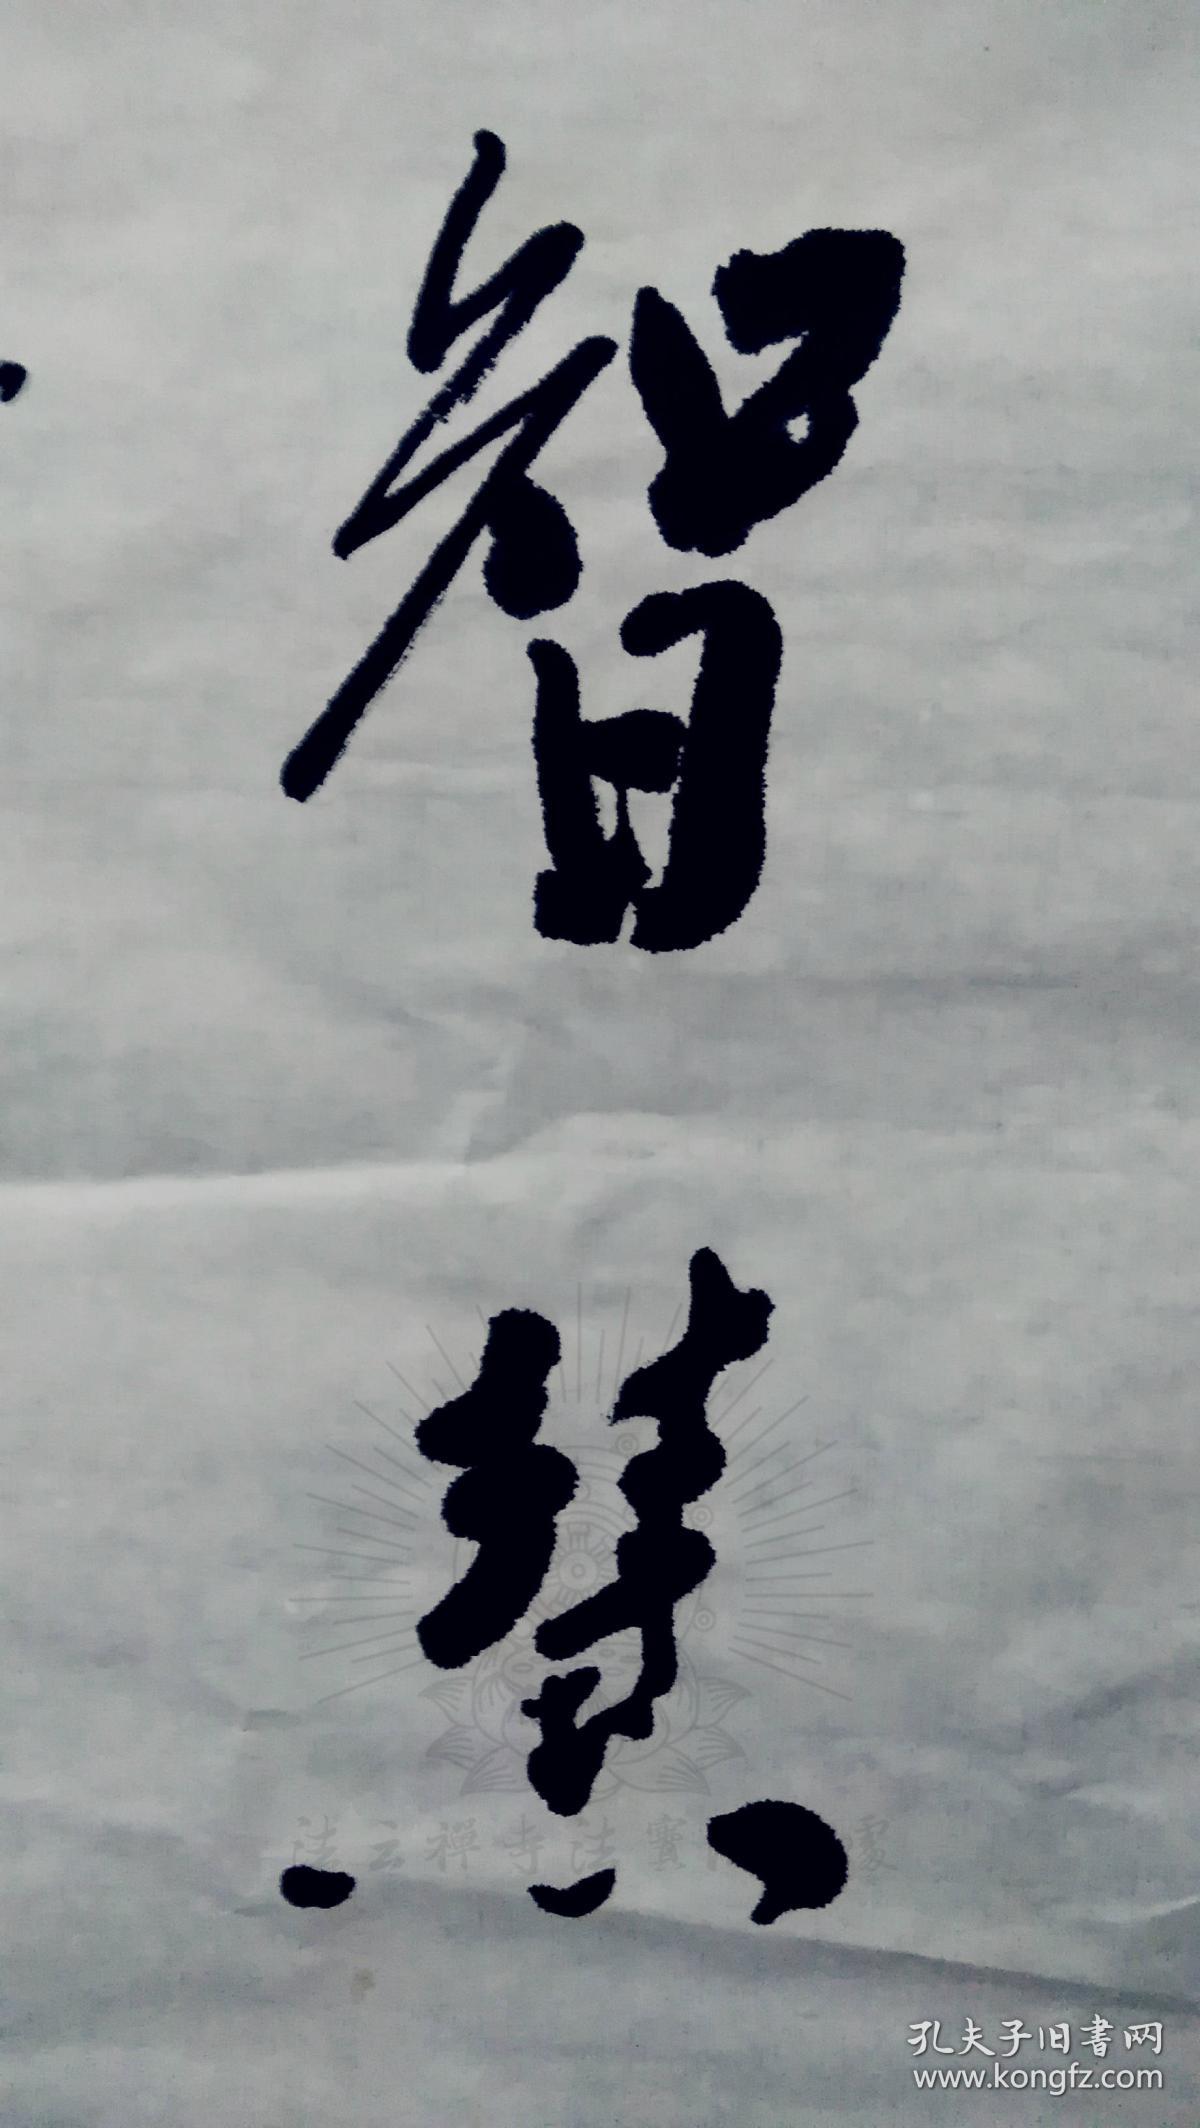 智慧
法云禅寺法寳
孔夫子旧書网
www.kongfz.com